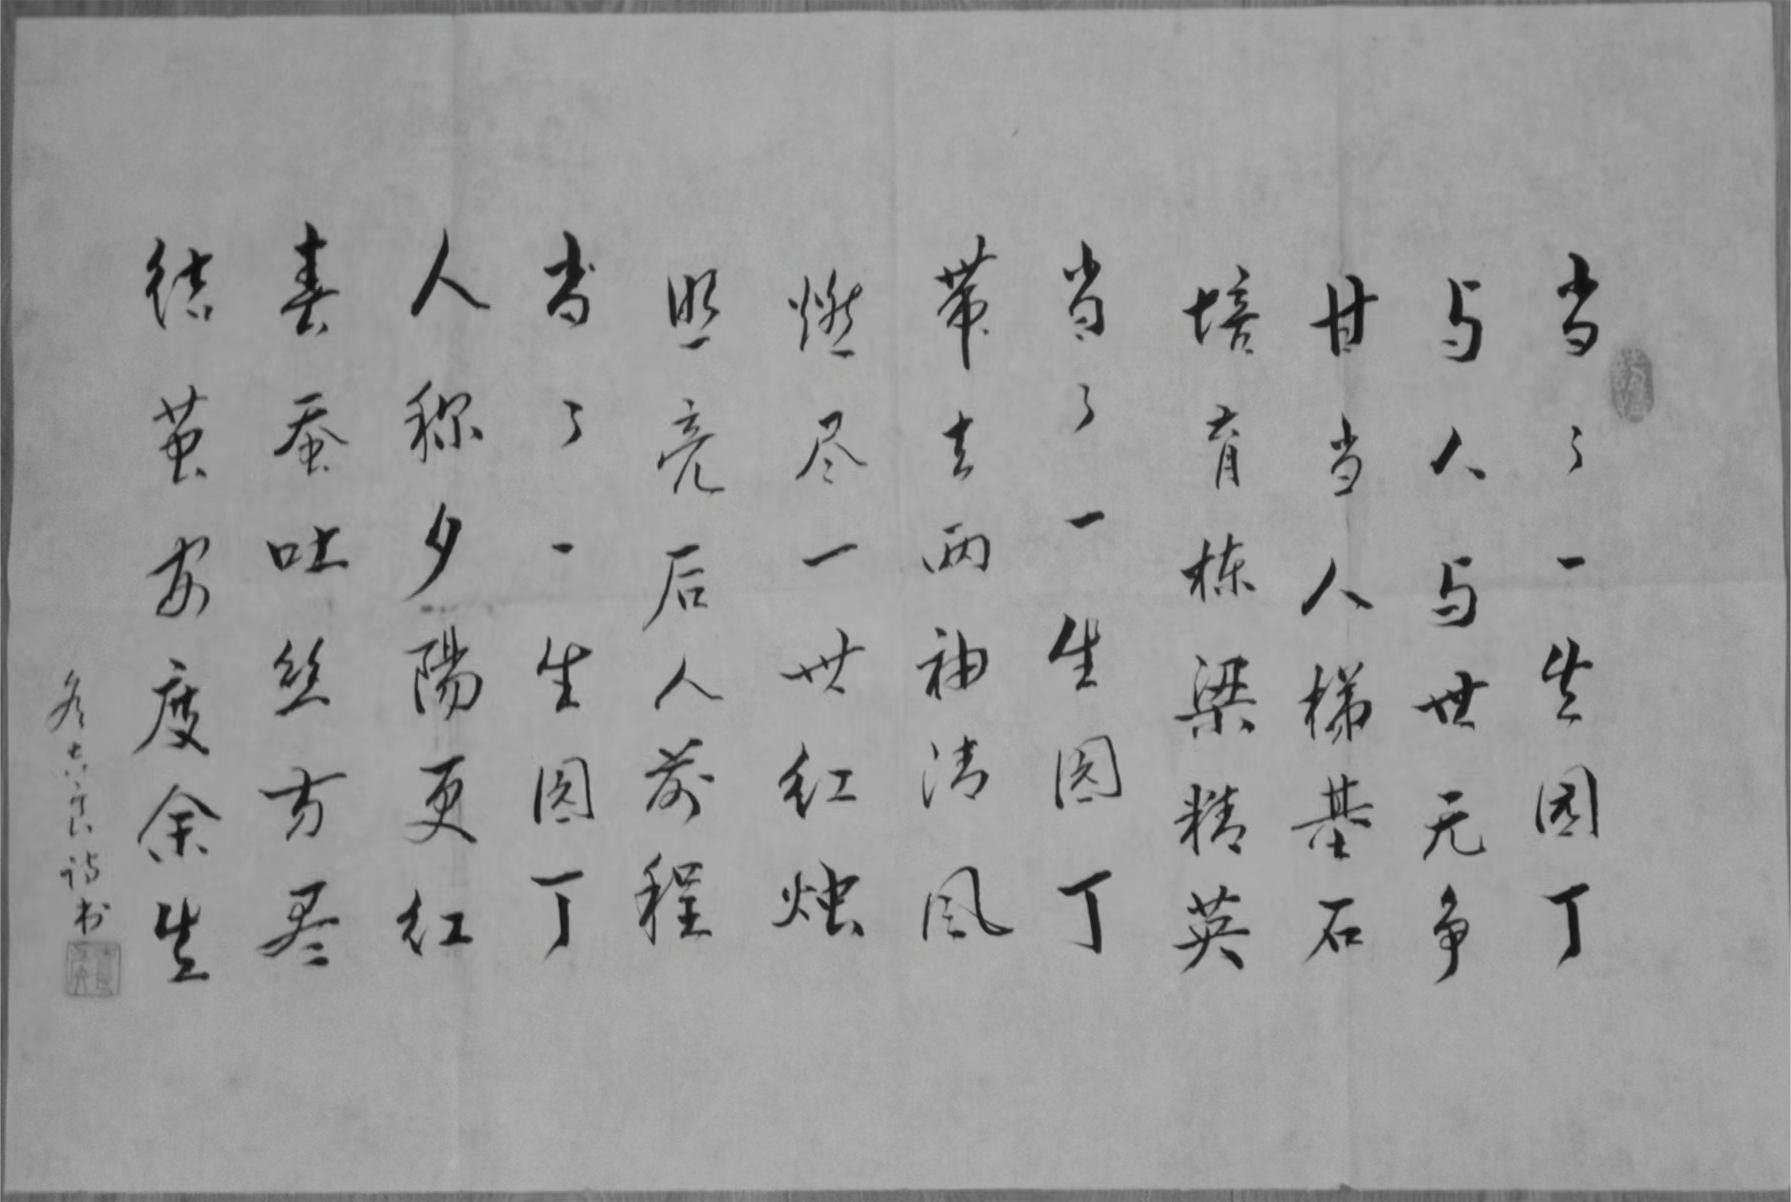 当了一生园丁
与人与世无争
甘当人梯基石
培育栋梁精英
当了一生园丁
带去两袖清风
燃尽一世红烛
照亮后人前程
当了一生园丁
人称夕陽更红
春蚕吐丝方尽
结茧安度余生
诗书